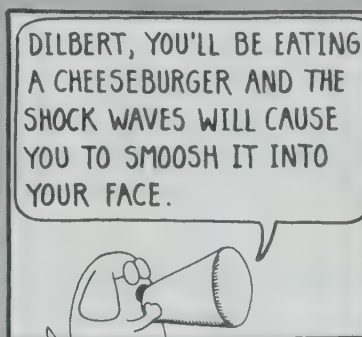 DILBERT, YOU'LL BE EATING
A CHEESEBURGER AND THE
SHOCK WAVES WILL CAUSE
YOU TO SMOOSH IT INTO
YOUR FACE.